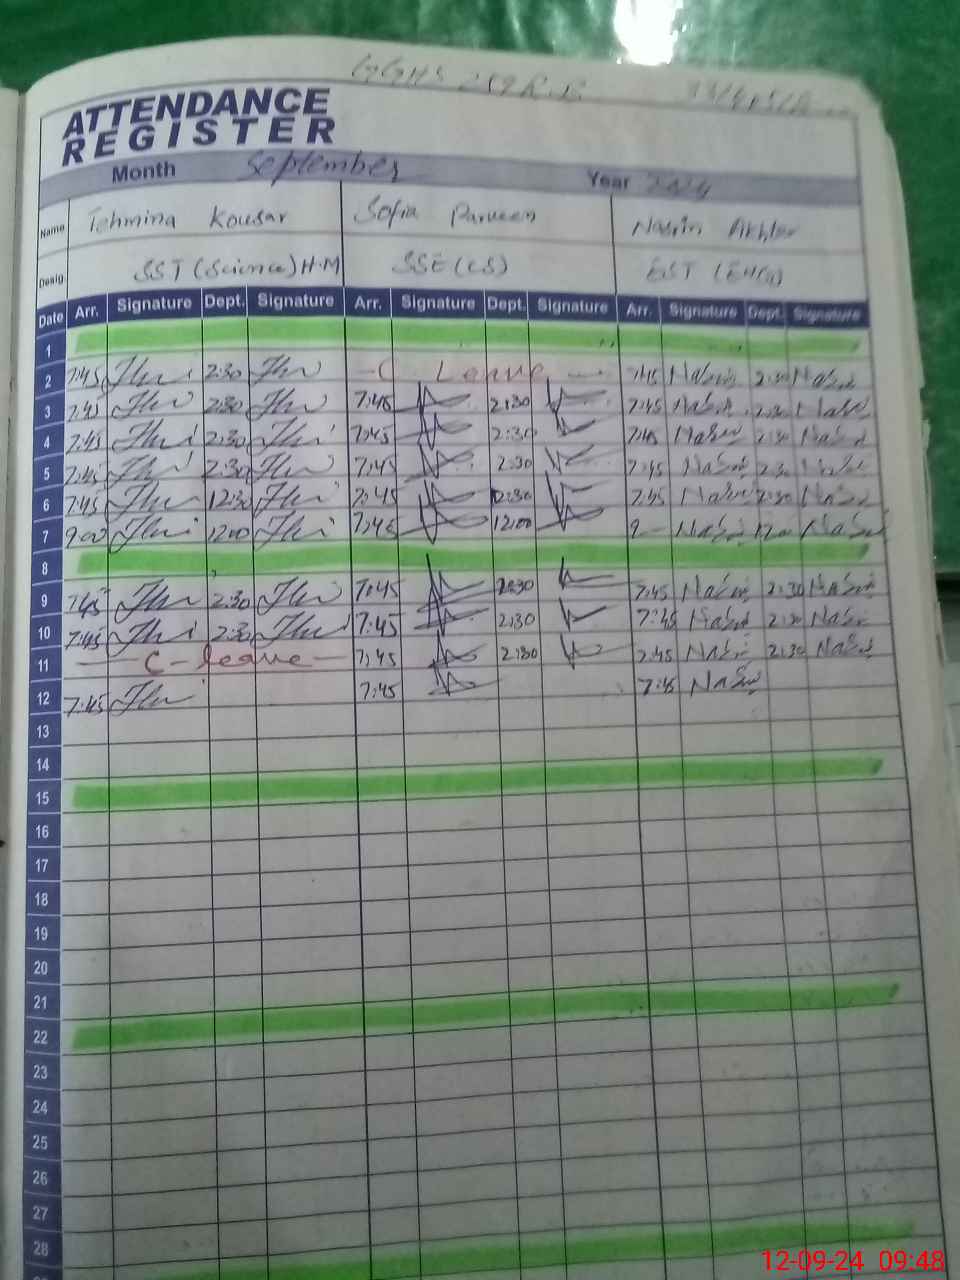 GGHS 259 R.B.
ATTENDANCE
REGISTER
Month September Year 2024
Name Tehmina Kousar Sofia Parveen Nasrin Akhter
Desig. SST (Science) H.M SSE (CS) EST (
Date Arr. Signature Dept. Signature Arr. Signature Dept. Signature Arr. Signature Dept. Signature
1
2 7:45 2:30 C Leave 7:45 Nasrin 2:30 Nasrin
3 7:45 2:30 7:45 2:30 7:45 Nasrin 2:30 Nasrin
4 7:45 2:30 7:45 2:30 7:45 Nasrin 2:30 Nasrin
5 7:45 2:30 7:45 2:30 7:45 Nasrin 2:30 Nasrin
6 7:45 12:30 7:45 12:30 7:45 Nasrin 12:30 Nasrin
7 9:00 12:00 7:45 12:00 9 Nasrin 12:00 Nasrin
8
9 7:45 2:30 7:45 2:30 7:45 Nasrin 2:30 Nasrin
10 7:45 2:30 7:45 2:30 7:45 Nasrin 2:30 Nasrin
11 C-leave 7:45 2:30 7:45 Nasrin 2:30 Nasrin
12 7:45 7:45 7:45 Nasrin
13
14
15
16
17
18
19
20
21
22
23
24
25
26
27
28
12-09-24 09:48